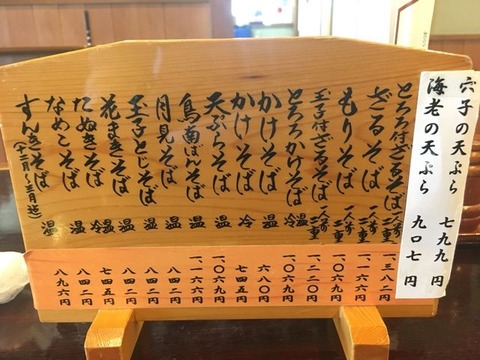 穴子の天ぷら 七九九円
海老の天ぷら 九〇七円
とろろ付ざるそば 一人前二重 一、三八二円
ざるそば 一人前二重 一、一六六円
もりそば 一人前二重 一、〇六九円
玉子付ざるそば 一人前二重 一、二一〇円
とろろかけそば 冷温 一、〇六九円
かけそば 温 六八〇円
かけそば 冷 七四五円
天ぷらそば 温 一、〇六九円
鳥南ばんそば 温 一、一六六円
月見そば 温 八四二円
玉子とじそば 温 八四二円
花まきそば 冷温 七四五円
たぬきそば 冷温 八四二円
なめこそば 温 八四二円
すんきそば(十二月〜三月迄) 温 八九六円